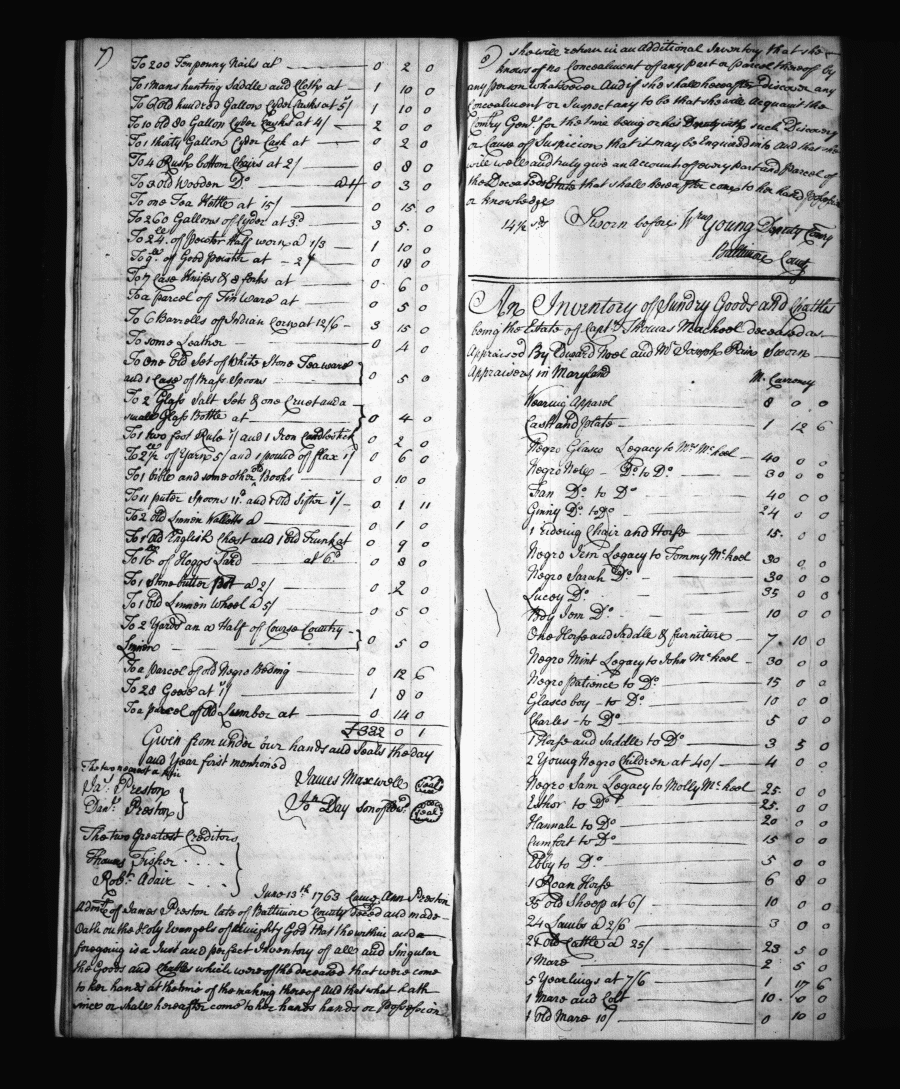 7)
To 200 Tenpenny Nails at 0 2 0
To 1 Mans hunting Saddle and Cloth at 1 10 0
To 6 Old hundred Gallon Cyder Casks at 5/ 1 10 0
To 10 old 80 Gallon Cyder Casks at 4/ 2 0 0
To 1 thirty Gallon Cyder Cask at 0 2 0
To 4 Rush bottom Chairs at 2/ 0 8 0
To 3 old Wooden Do a 1/ 0 3 0
To one Tea Kettle at 15/ 0 15 0
To 260 Gallons of Cyder at 3d 3 5 0
To 24 of Pewter Half worn a 1/3 1 10 0
To 9 of Good pewter at 2/ 0 18 0
To 7 Case Knifes & 8 forks at 0 6 0
To a parcel of Tin Ware at 0 5 0
To 6 Barrells of Indian Corn at 12/6 3 15 0
To some Leather 0 4 0
To One Old Set of White Stone Tea ware
and 1 Case of Brass Spoons 0 5 0
To 2 Glass Salt Sets & one Cruet and a
small Glass Bottle at 0 4 0
To 1 two foot Rule 1/ and 1 Iron Candlestick 0 2 0
To 2½ of Yarn 5/ and 1 pound of flax 1/ 0 6 0
To 1 bible and some other Books 0 10 0
To 11 puter Spoons 11d and 1 old Sifter 1/ 0 1 11
To 2 old Linnin Walletts a 0 1 0
To 1 Old English Chest and 1 Old Trunk at 0 9 0
To 16 of Hoggs Lard at 6d 0 8 0
To 1 Stone butter Pot a 2/ 0 2 0
To 1 Old Linnin Wheel a 5/ 0 5 0
To 2 Yards an a Half of Course Country
Linnen 0 5 0
To a parcel of old Negro Beding 0 12 6
To 28 Geese at 1/ 1 8 0
To a parcel of Old Lumber at 0 14 0
£332 0 1
Given from under our hands and Seals the day
and Year first mentioned
The two nearest a Kin
Jas Preston
Danl Preston
James Maxwell (Seal)
Jno Day son of Edwd (Seal)
The two Greatest Creditors
Thomas Fisher
Robt Adair
June 13th 1763 Came Ann Preston
Admx of James Preston late of Baltimore County deced and made
Oath on the Holy Evangels of Almighty God that the within and a
foregoing is a Just and perfect Inventory of all and Singular
the Goods and Chattles which were of the deceased that were come
to her hands at the time of the making thereof and that what hath
since or shall hereafter come to her hands hands or Possession
8) she will return in an additional Inventory that she
knows of no Concealment of any part or parcel thereof by
any person whatsoever And if she shall hereafter discover any
Concealment or Suspect any to be that she will Acquaint the
Comry Genl for the time being or his Deputy with such Discovery
or Cause of Suspicion that it may be Inquired into And that she
will well and truly give an account of every part and parcel of
the Deceaseds Estate that shall hereafter come to her hand possession
or knowledge
14½ sds Sworn before Wm Young Deputy Comry
Baltimore County
An Inventory of Sundry Goods and Chattles
being the Estate of Capt Thomas Mackeel deceased as
Appraised By Edward Noel and Mr Joseph Rain Sworn
Appraisers in Maryland M. Currency
Wearing Apparel 8 0 0
Cash and plate 1 12 6
Negro Glasco Legacy to Mrs McKeel 40 0 0
Negro Nele Do to Do 30 0 0
Fan Do to Do 40 0 0
Ginny Do to Do 24 0 0
1 rideing Chair and Horse 15 0 0
Negro Jem Legacy to Tommy McKeel 30 0 0
Negro Sarah Do 30 0 0
Lucey Do 35 0 0
Boy Jem Do 10 0 0
One Horse and Saddle & furniture 7 10 0
Negro Mint Legacy to John McKeel 30 0 0
Negro patience to Do 15 0 0
Glasco boy to Do 10 0 0
Charles to Do 5 0 0
1 Horse and Saddle to Do 3 5 0
2 Young Negro Children at 40/ 4 0 0
Negro Sam Legacy to Molly McKeel 25 0 0
Esther to Do 25 0 0
Hannah to Do 20 0 0
Cumfort to Do 15 0 0
Ebby to Do 5 0 0
1 Roan Horse 6 8 0
35 old Sheep at 6/ 10 0 0
24 Lambs a 2/6 3 0 0
old Cattle a 25/ 23 5 0
1 Mare 2 5 0
5 Yearlings at 7/6 1 17 6
1 Mare and Colt 10 0 0
1 old Mare 10/ 0 10 0